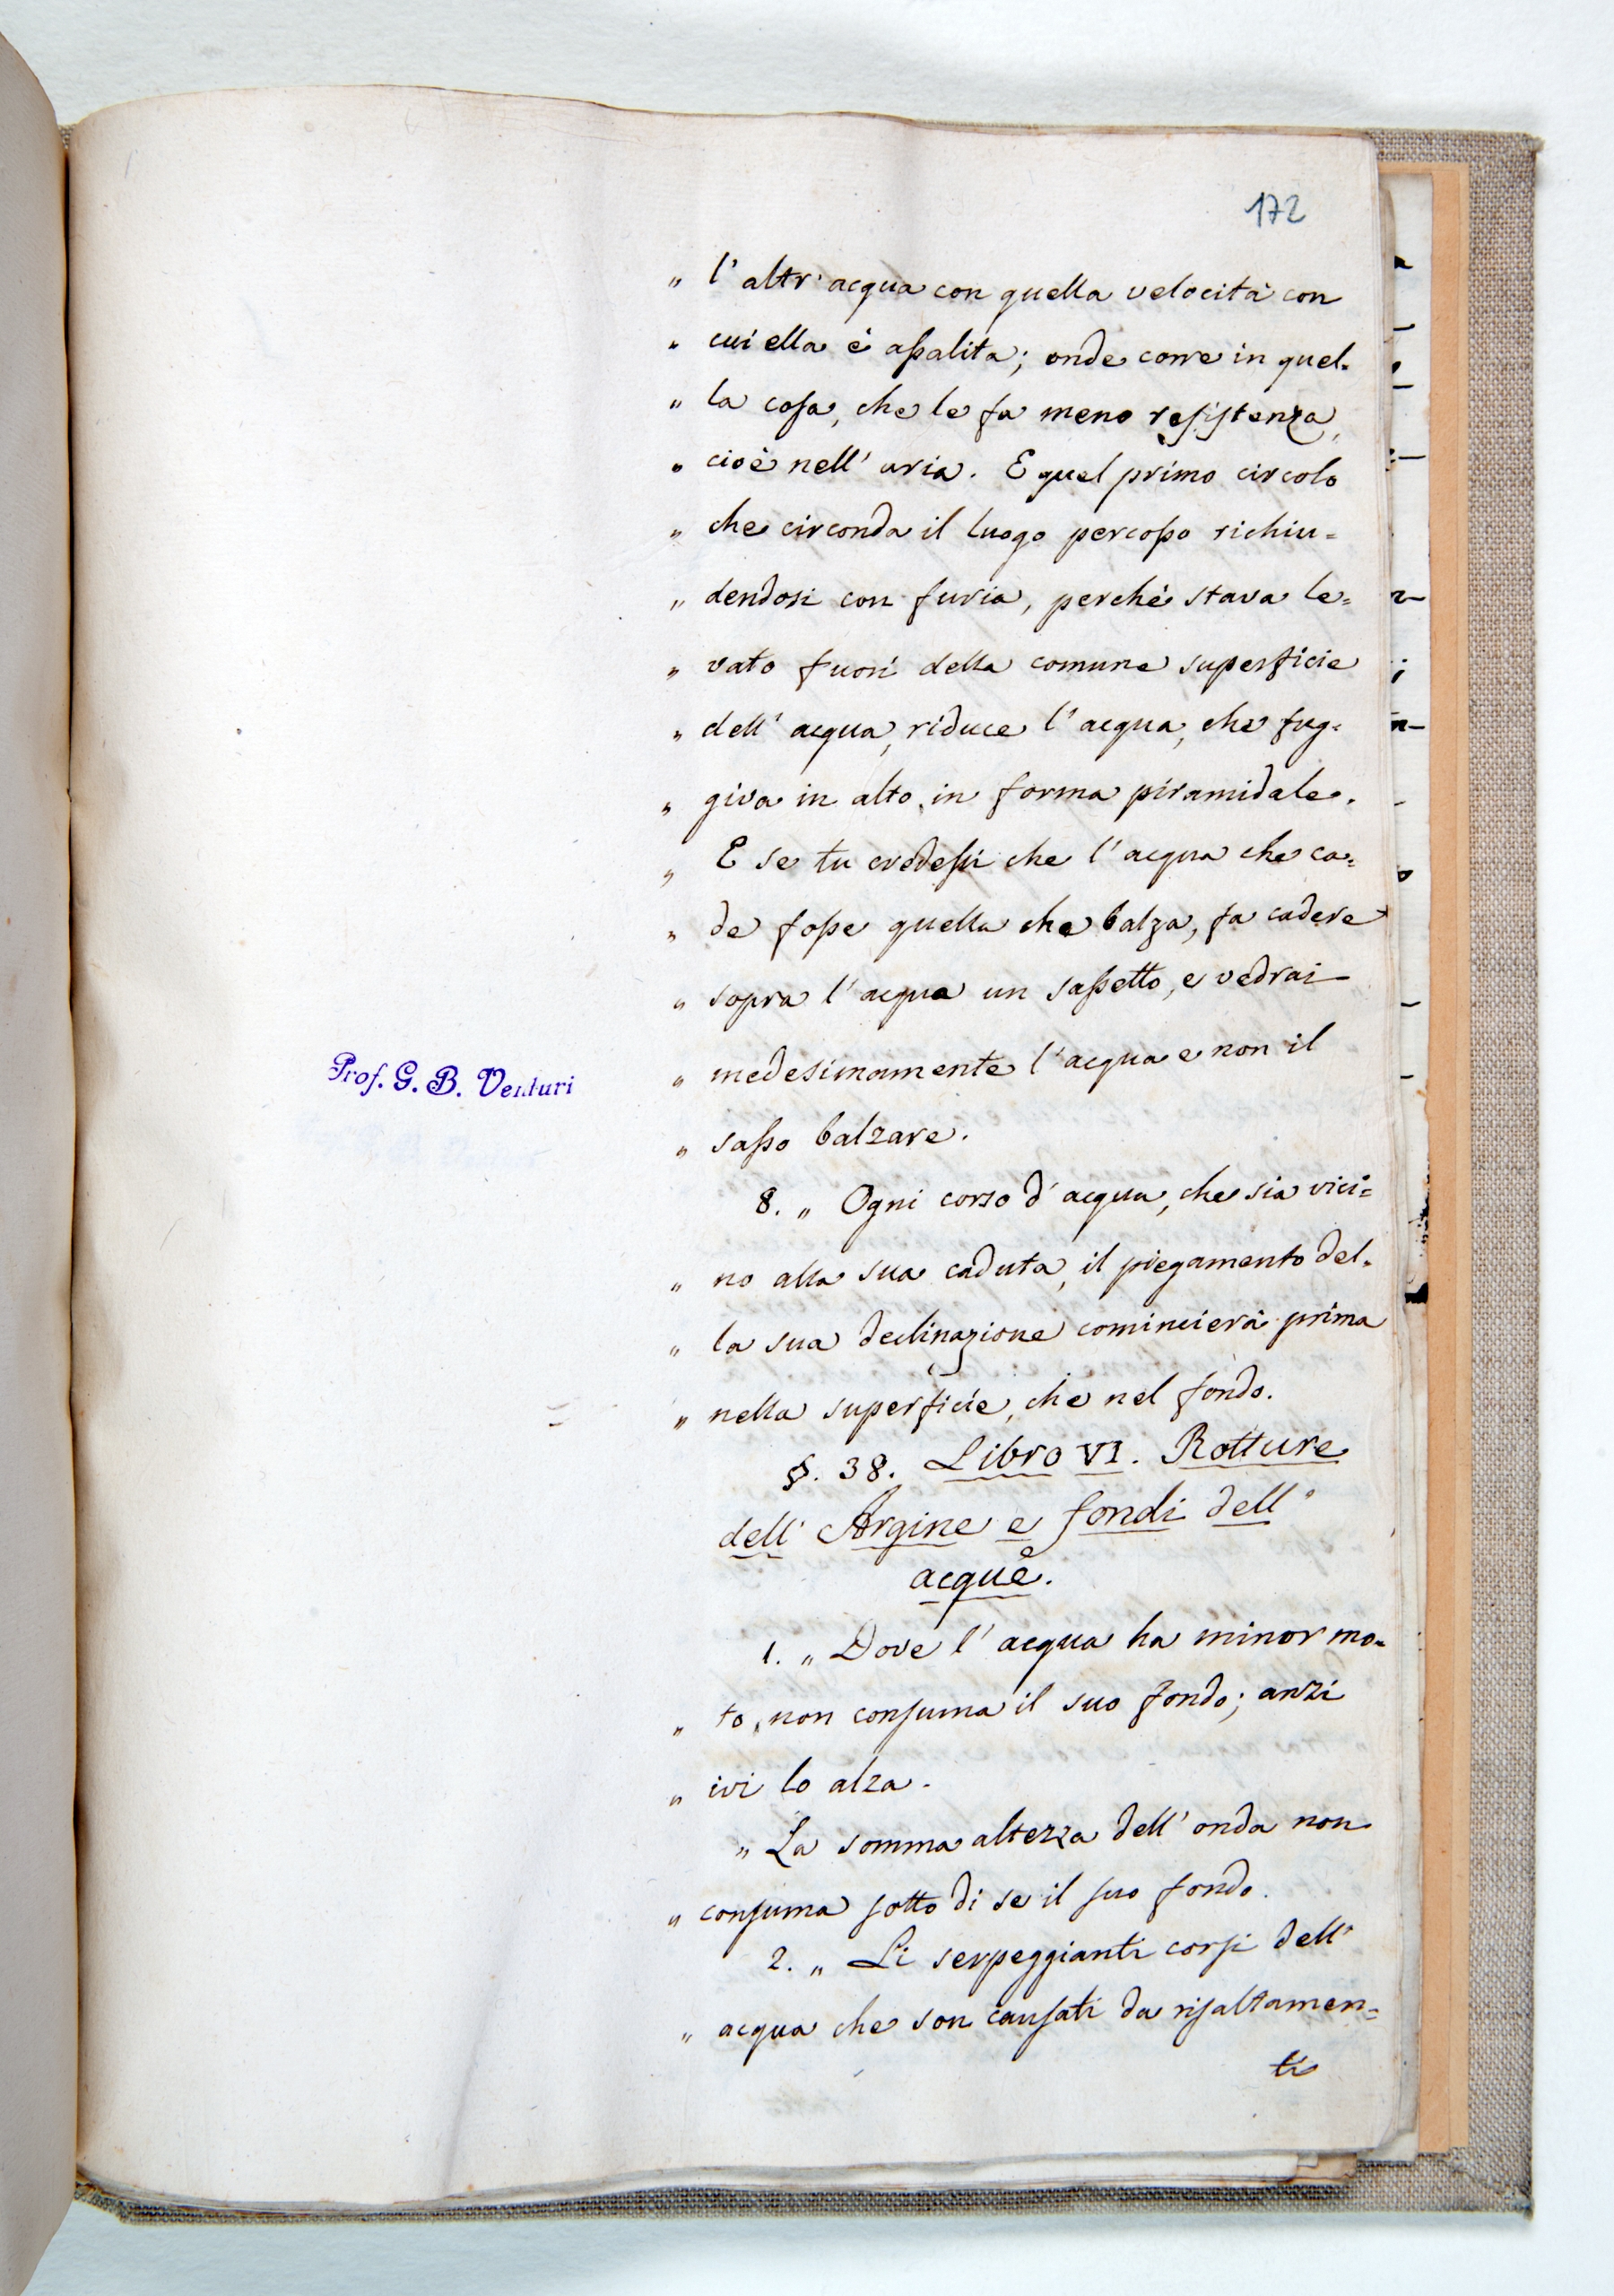 172
„ l'altr'acqua con quella velocità con
„ cui ella è aſsalita; onde corre in quel=
„ la coſa, che le fa meno reſiſtenza,
„ cioè nell'aria. E quel primo circolo
„ che circonda il luogo percoſso richiu=
„ dendosi con furia, perchè stava le=
„ vato fuori della comune superficie
„ dell'acqua, riduce l'acqua, che fug=
„ giva in alto, in forma piramidale.
„ E se tu credeſsi che l'acqua che ca=
„ de foſse quella che balza, fa cadere
„ sopra l'acqua un saſsetto, e vedrai
„ medesimamente l'acqua e non il
„ saſso balzare.
8. „ Ogni corso d'acqua, che sia vici=
„ no alla sua caduta, il piegamento del=
„ la sua declinazione comincierà prima
„ nella superficie, che nel fondo.
§. 38. Libro VI. Rotture
dell'Argine e fondi dell'
acque.
1. „ Dove l'acqua ha minor mo=
„ to, non conſuma il suo fondo; anzi
„ ivi lo alza.
„ La somma altezza dell'onda non
„ conſuma ſotto di se il ſuo fondo.
2. „ Li serpeggianti corſi dell'
„ acqua che son cauſati da riſaltamen=
ti
Prof. G. B. Venturi